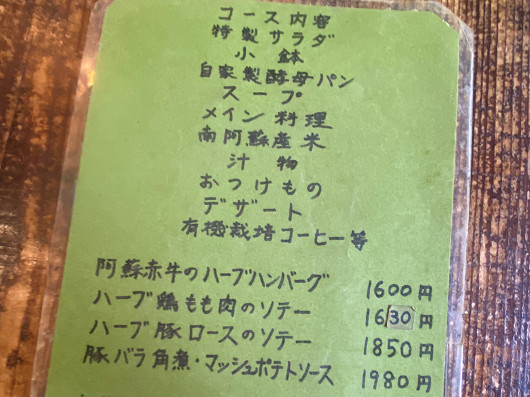 コース内容
特製サラダ
小鉢
自家製酵母パン
スープ
メイン料理
南阿蘇産米
汁物
おつけもの
デザート
有機栽培コーヒー等
阿蘇赤牛のハーブハンバーグ 1600円
ハーブ鶏もも肉のソテー 1630円
ハーブ豚ロースのソテー 1850円
豚バラ角煮・マッシュポテトソース 1980円